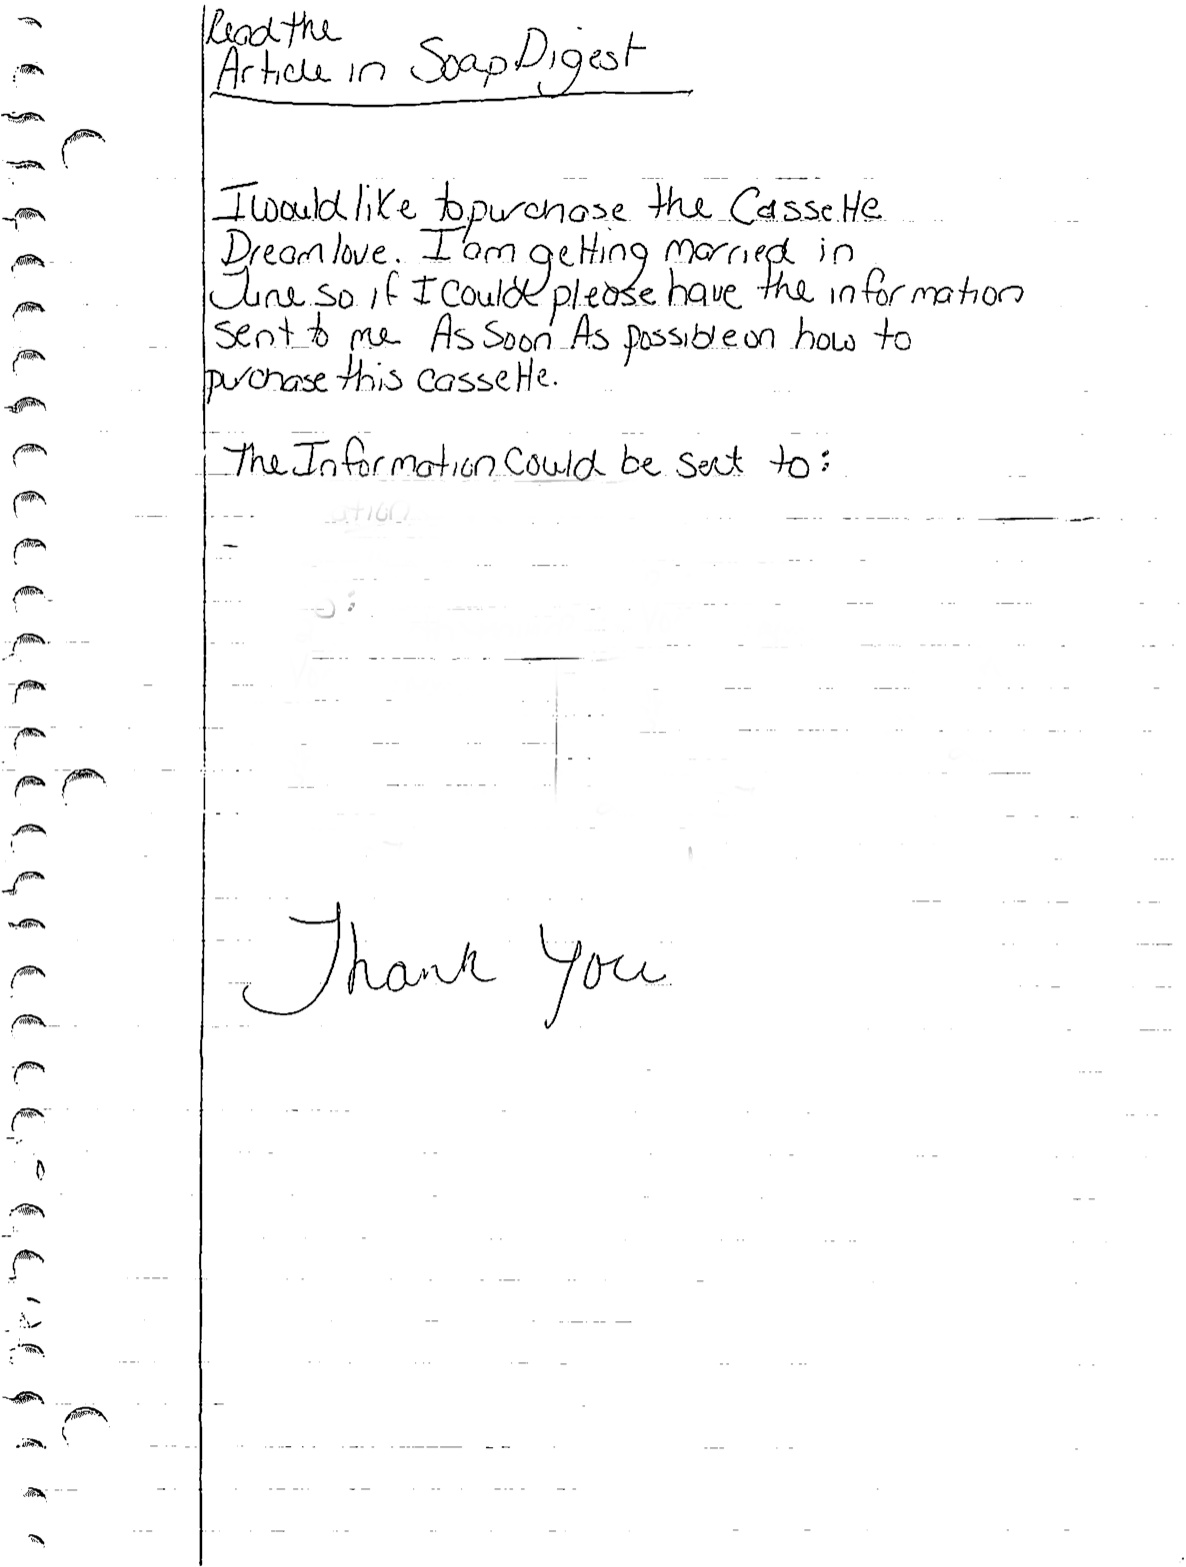 Read the
Article in Soap Digest
I would like to purchase the Cassette
Dreamlove. I am getting married in
June so if I could please have the information
sent to me As Soon As possible on how to
purchase this cassette.
The Information Could be sent to:
Thank You